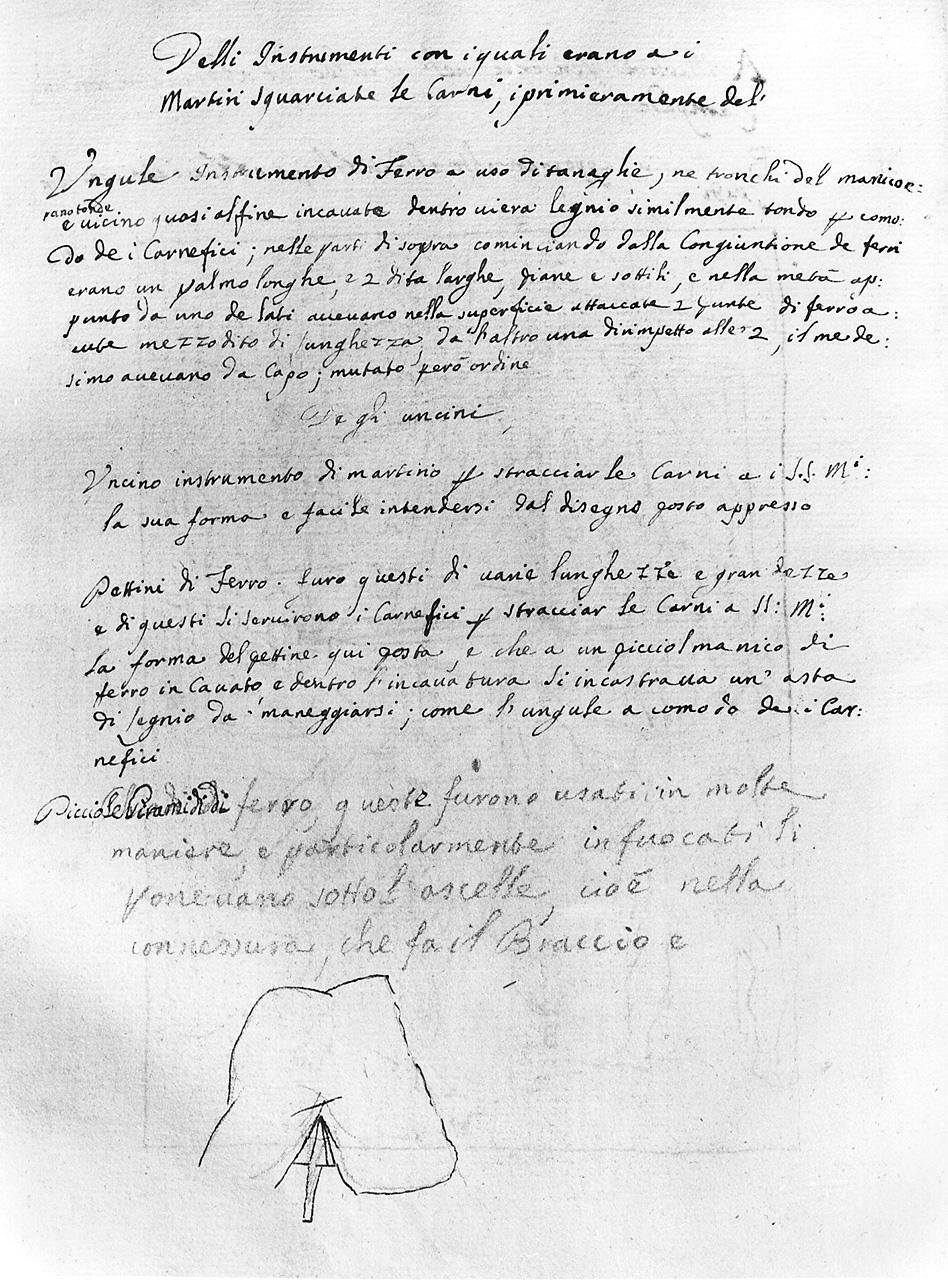 Delli Instrumenti con i quali erano a i
Martiri squarciate le Carni, i primieramente del'
Vngule Instrumento di Ferro a uso di tanaglie, ne tronchi del manico e:
rano tonde
e vicino quasi al fine incavate dentro viera legnio similmente tondo p como:
do de i Carnefici; nelle parti di sopra cominciando dalla Congiuntione de ferri
erano un palmo longhe, 2 dita larghe, piane e sottili, e nella metà ap:
punto da uno de lati avevano nella superficie attaccate 2 punte di ferro a:
cute mezzo dito di lunghezza, da l'altro una dirimpetto alle 2, il mede:
simo avevano da Capo; mutato però ordine
De gli uncini
Vncino instrumento di martirio p stracciar le Carni a i S.S. Mi:
la sua forma e facile intendersi dal disegno posto appresso
Pettini di Ferro. furo questi di varie lunghezze e grandezze
e di questi si servirono i Carnefici p stracciar le Carni a SS: Mi:
la forma del pettine qui posta, e che a un picciol manico di
ferro in Cavato e dentro l'incavatura si incastrava un' asta
di legnio da maneggiarsi; come l'ungule a comodo de i Car:
nefici
Picciole Piramidi di ferro, queste furono usati in molte
maniere, e particolarmente infuocati si
ponevano sotto l'ascelle, cioè nella
connessura, che fa il Braccio e